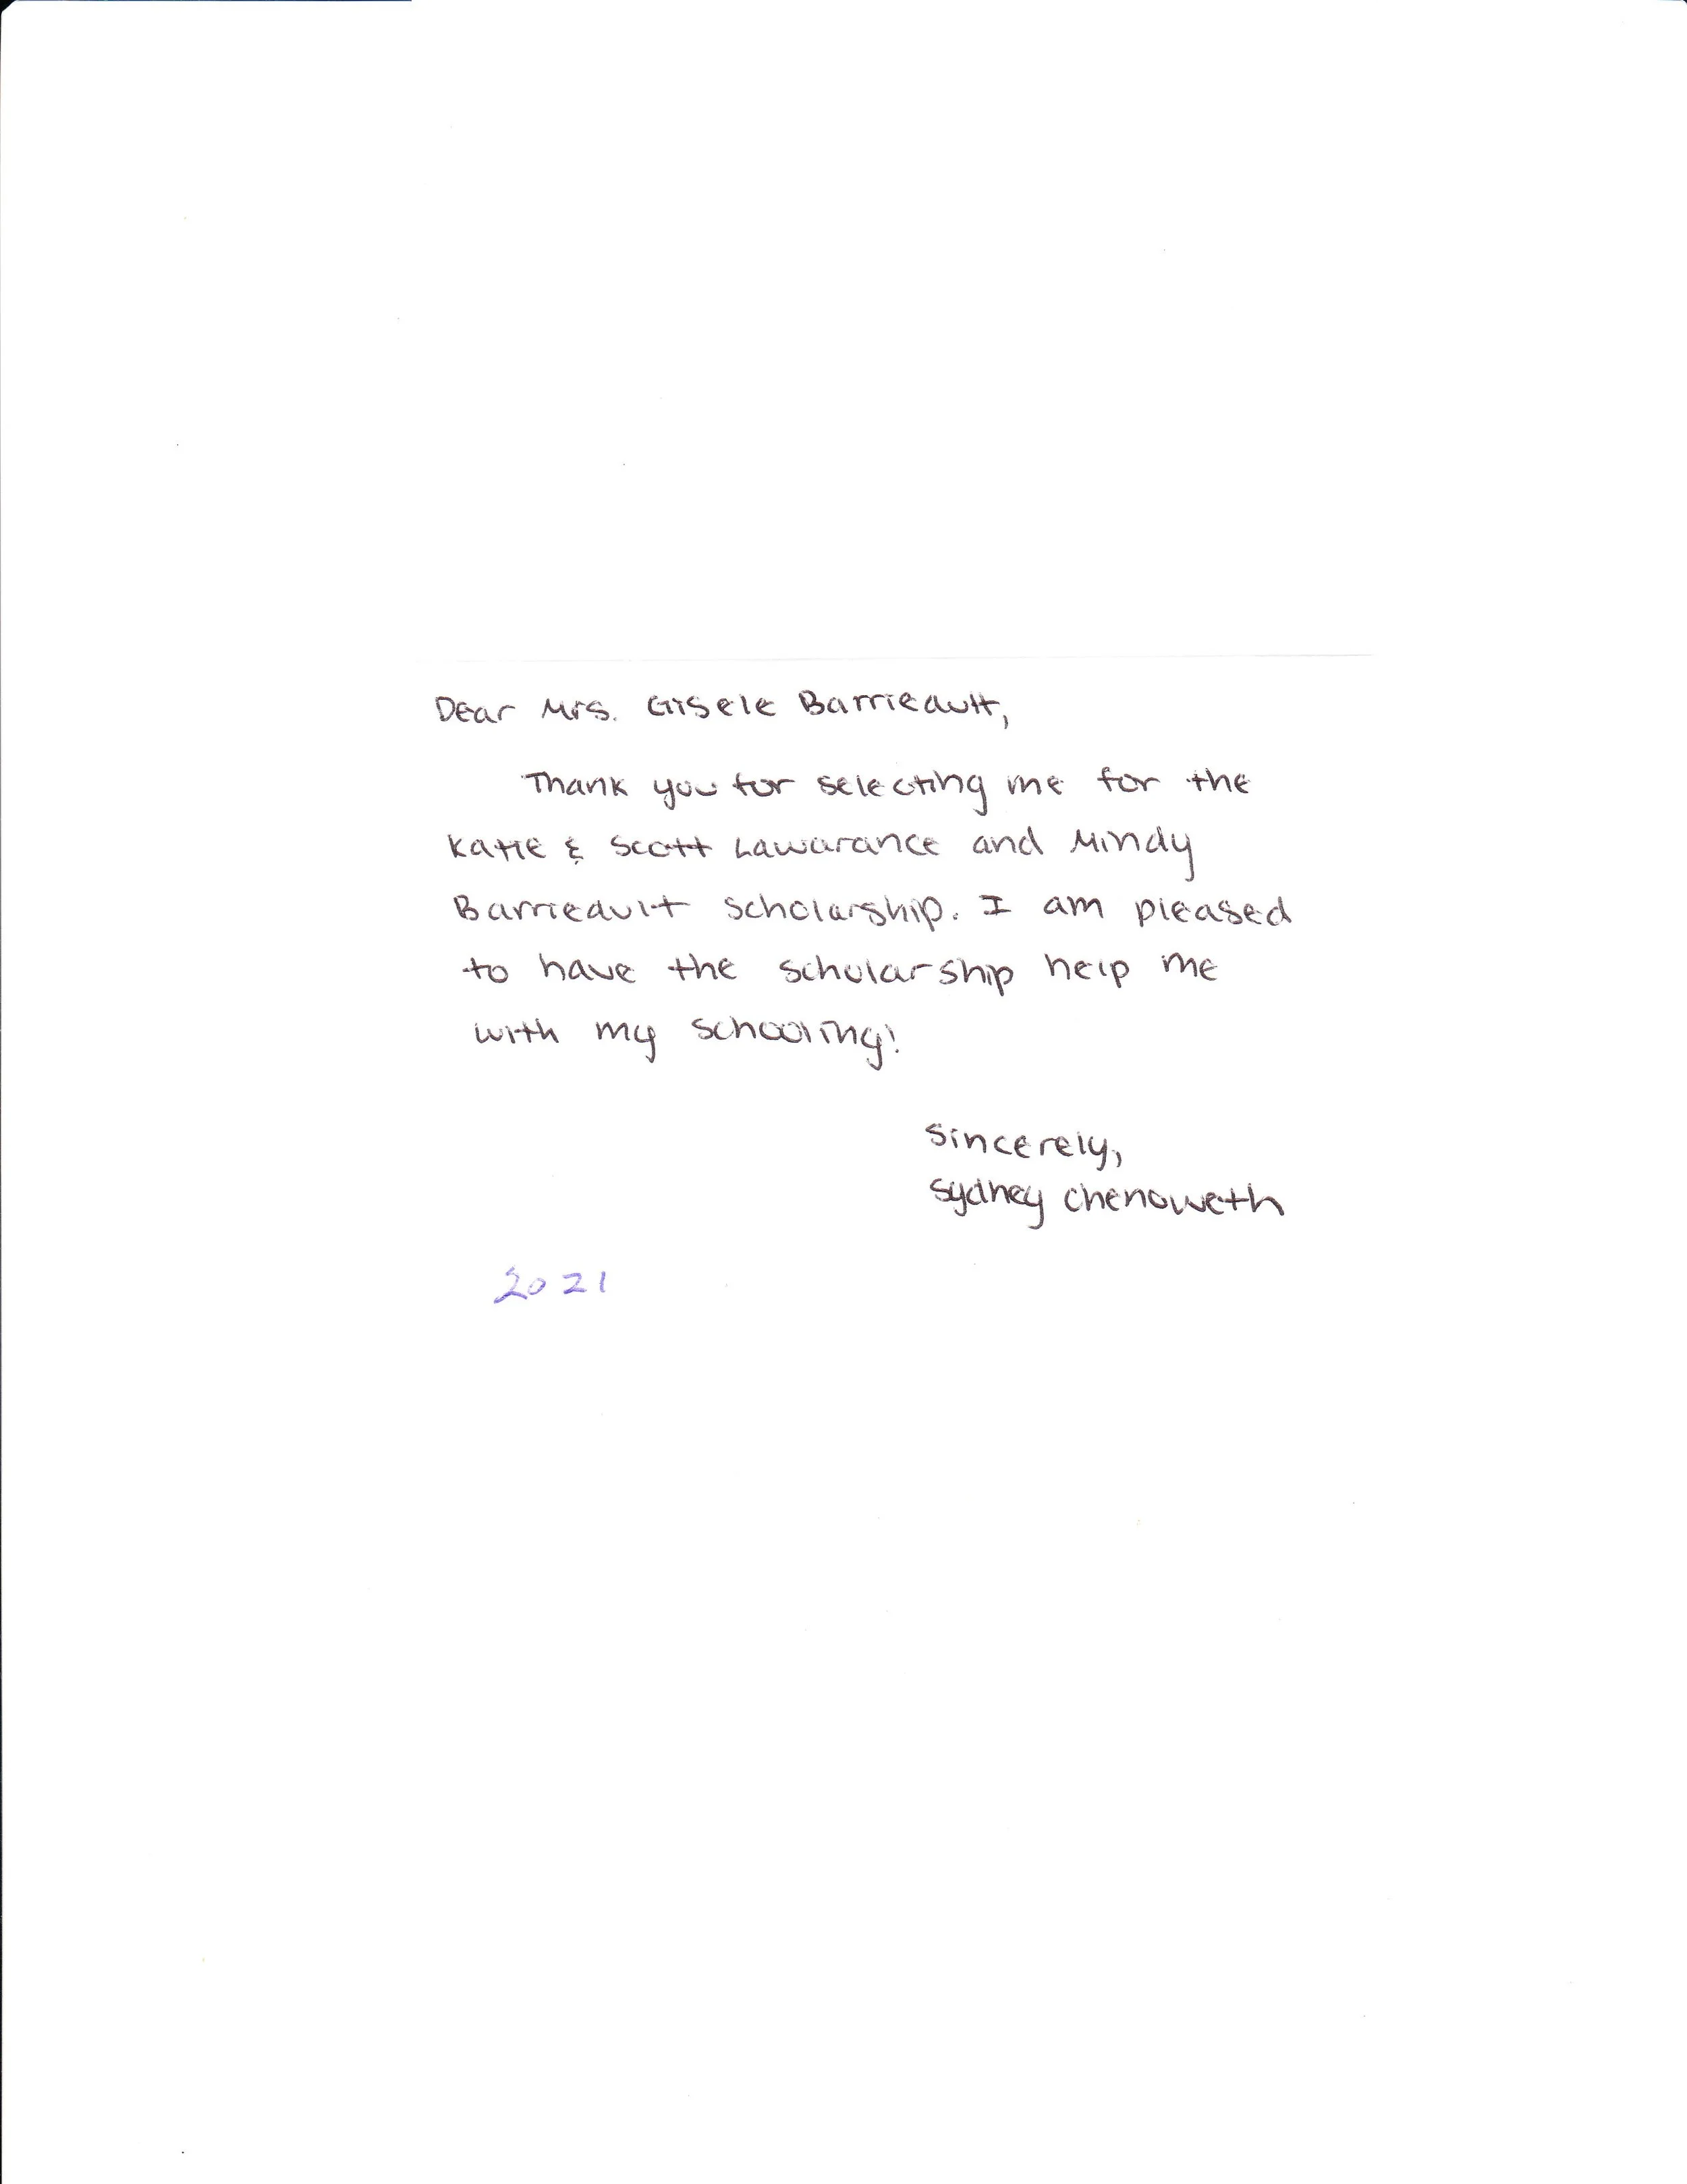 Dear Mrs. Gisele Barrieault,
Thank you for selecting me for the
Katie & Scott Lawarance and Mindy
Barrieault Scholarship. I am pleased
to have the scholarship help me
with my schooling!
Sincerely,
Sydney Chenoweth
2021